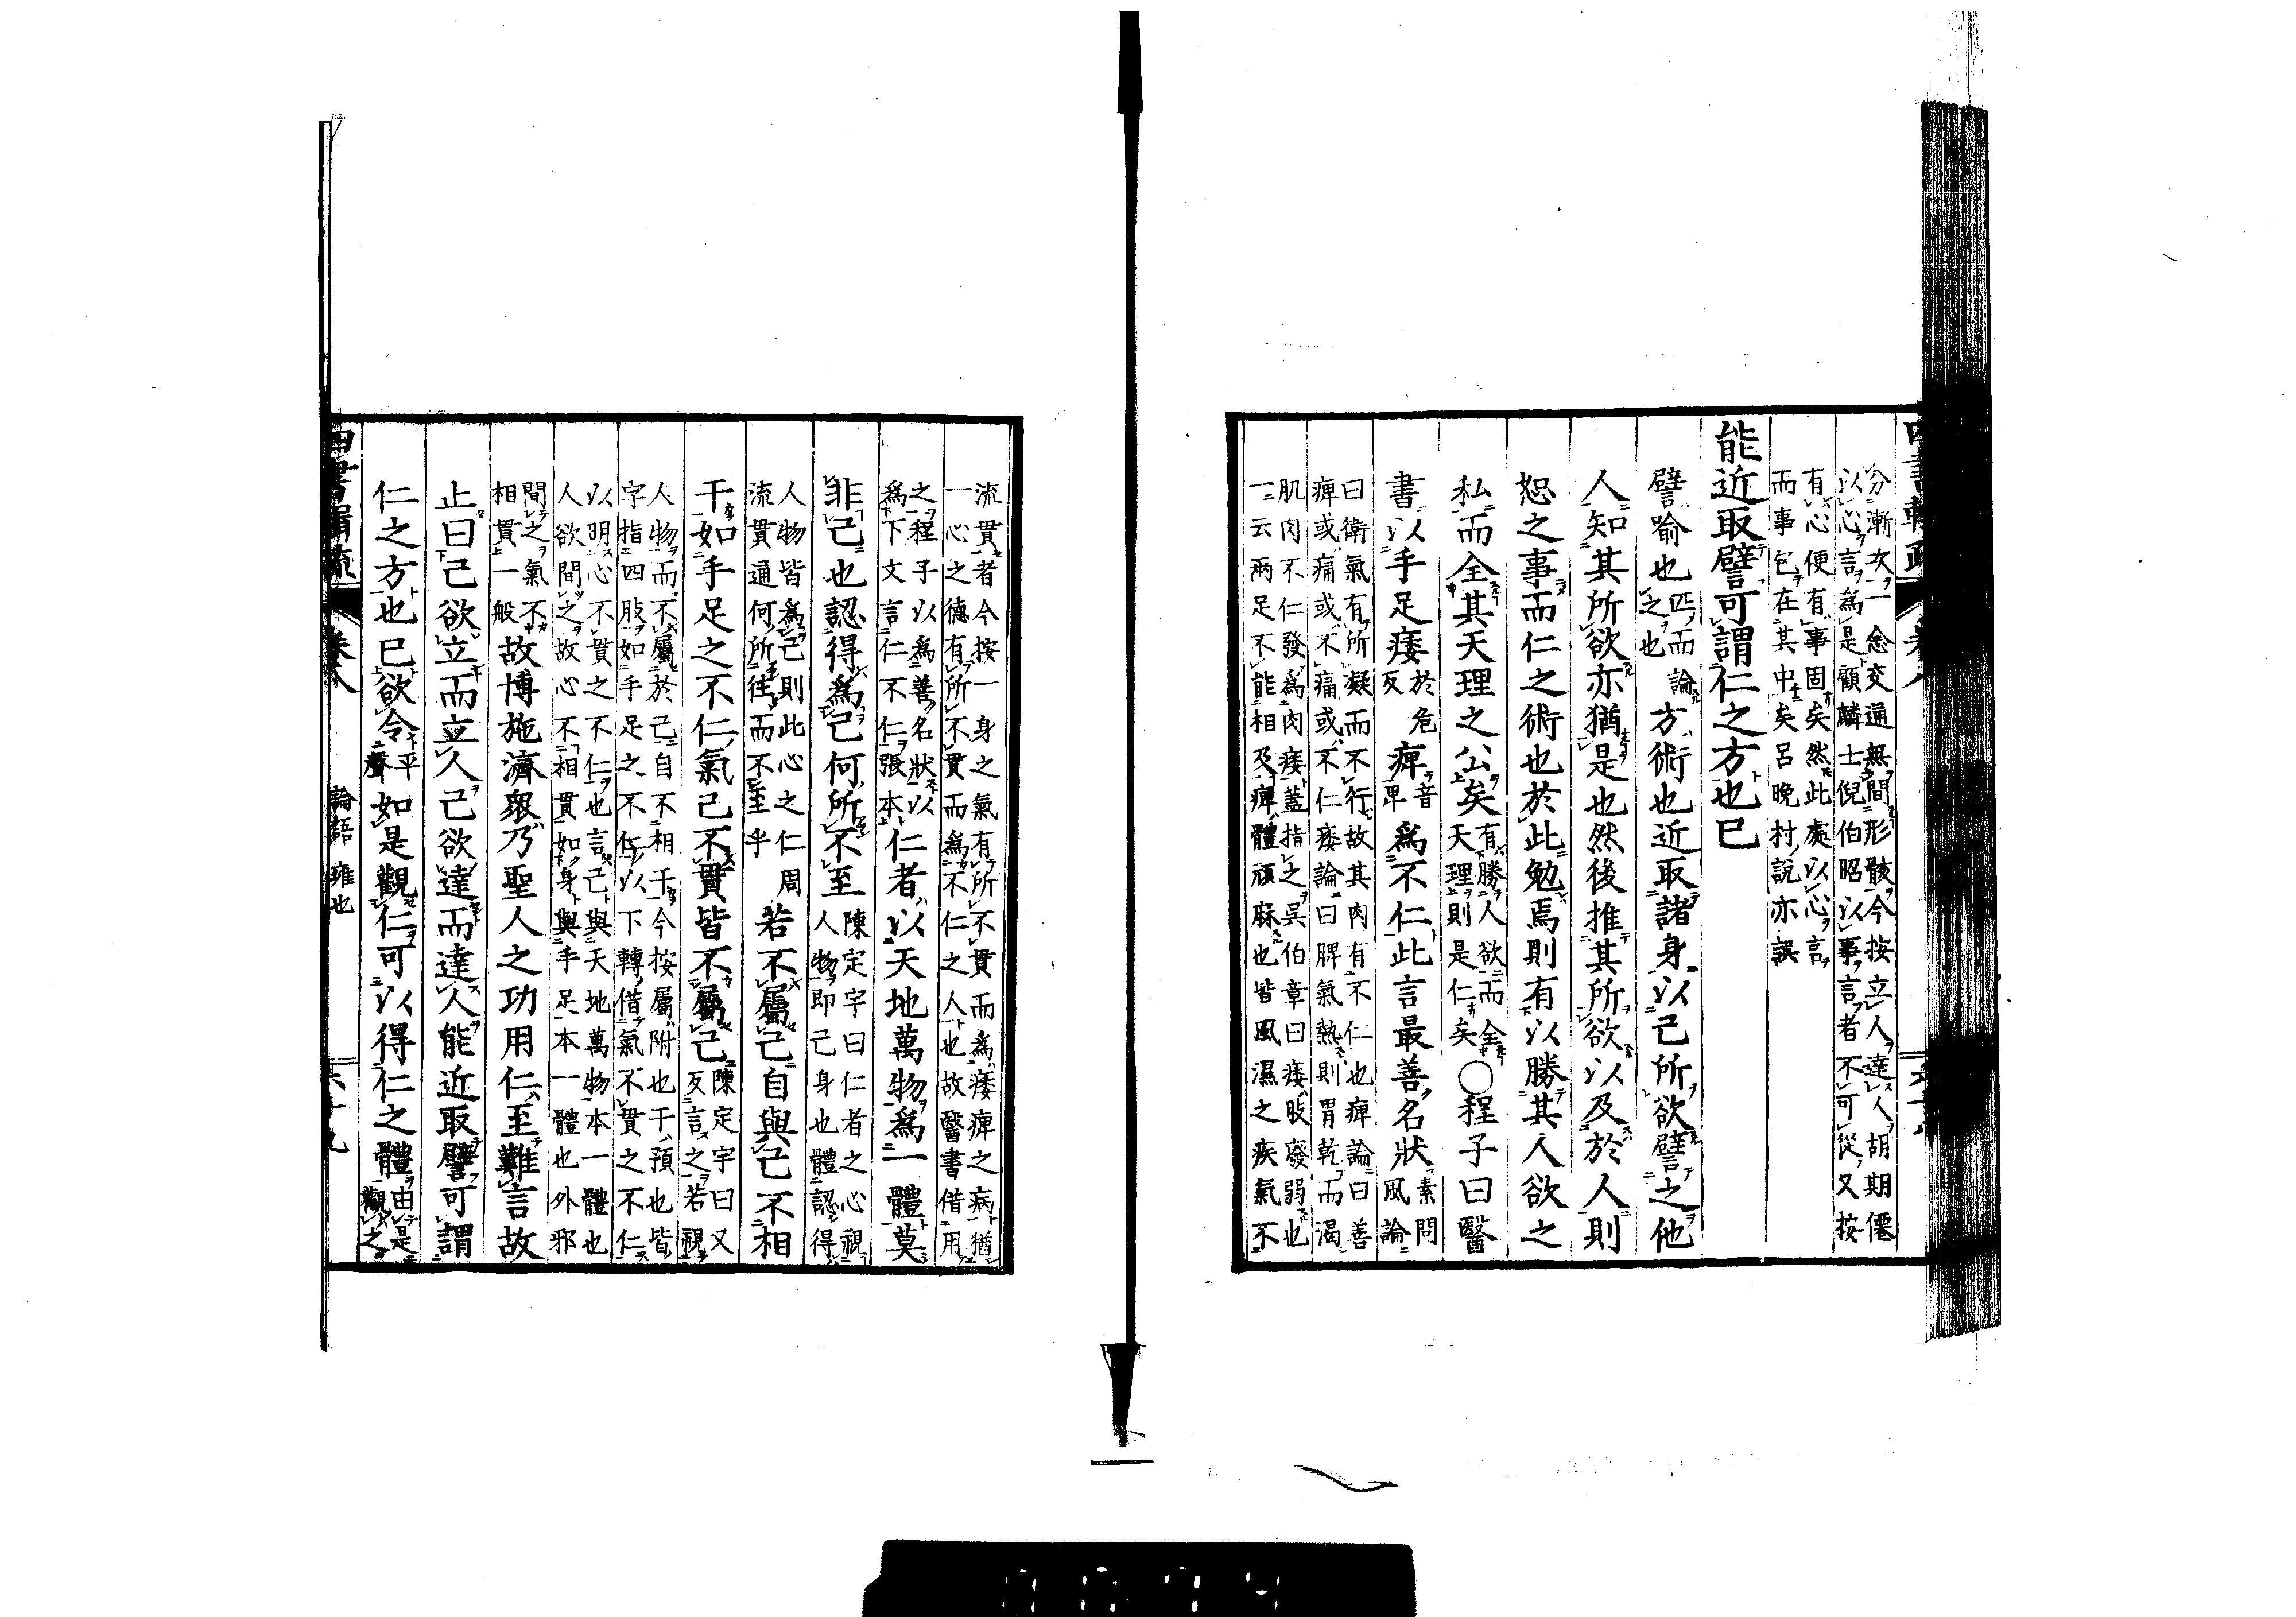 分漸次一念交通無間形骸今按立人達人胡期僊
以心言爲是顧麟士倪伯昭以事言者不可從又按
有心便有事固矣然此處以心言
而事包在其中矣呂晚村説亦誤
能近取譬可謂仁之方也已
譬喻也匹而論之也方術也近取諸身以己所欲譬之他
人知其所欲亦猶是也然後推其所欲以及於人則
恕之事而仁之術也於此勉焉則有以勝其人欲之
私而全其天理之公矣有勝人欲而全天理則是仁矣○程子曰醫
書以手足痿於危反痺音卑爲不仁此言最善名狀素問風論
曰衛氣有所凝而不行故其肉有不仁也痺論曰善
痺或痛或不痛或不仁痿論曰脾氣熱則胃乾而渴
肌肉不仁發爲肉痿蓋指之吳伯章曰痿肢廢弱也
一云兩足不能相及痺體頑麻也皆風濕之疾氣不
流貫者今按一身之氣有所不貫而爲痿痺之病猶
一心之德有所不貫而爲不仁之人也故醫書借用
之程子以爲善名狀以
爲下文言仁不仁張本仁者以天地萬物爲一體莫
非己也認得爲己何所不至陳定宇曰仁者之心視
人物即己身也體認得
人物皆爲己則此心之仁周
流貫通何所往而不至乎若不屬己自與己不相
干如手足之不仁氣已不貫皆不屬己陳定宇曰又
反言之若視
人物而不屬於己自不相干今按屬附也干預也皆
字指四肢如手足之不仁以下轉借氣不貫之不仁
以明心不貫之不仁也言己與天地萬物本一體也
人欲間之故心不相貫如身與手足本一體也外邪
間之氣不
相貫一般故博施濟衆乃聖人之功用仁至難言故
止曰己欲立而立人己欲達而達人能近取譬可謂
仁之方也已欲令平聲如是觀仁可以得仁之體由是
觀之
卷八
論語 雍也